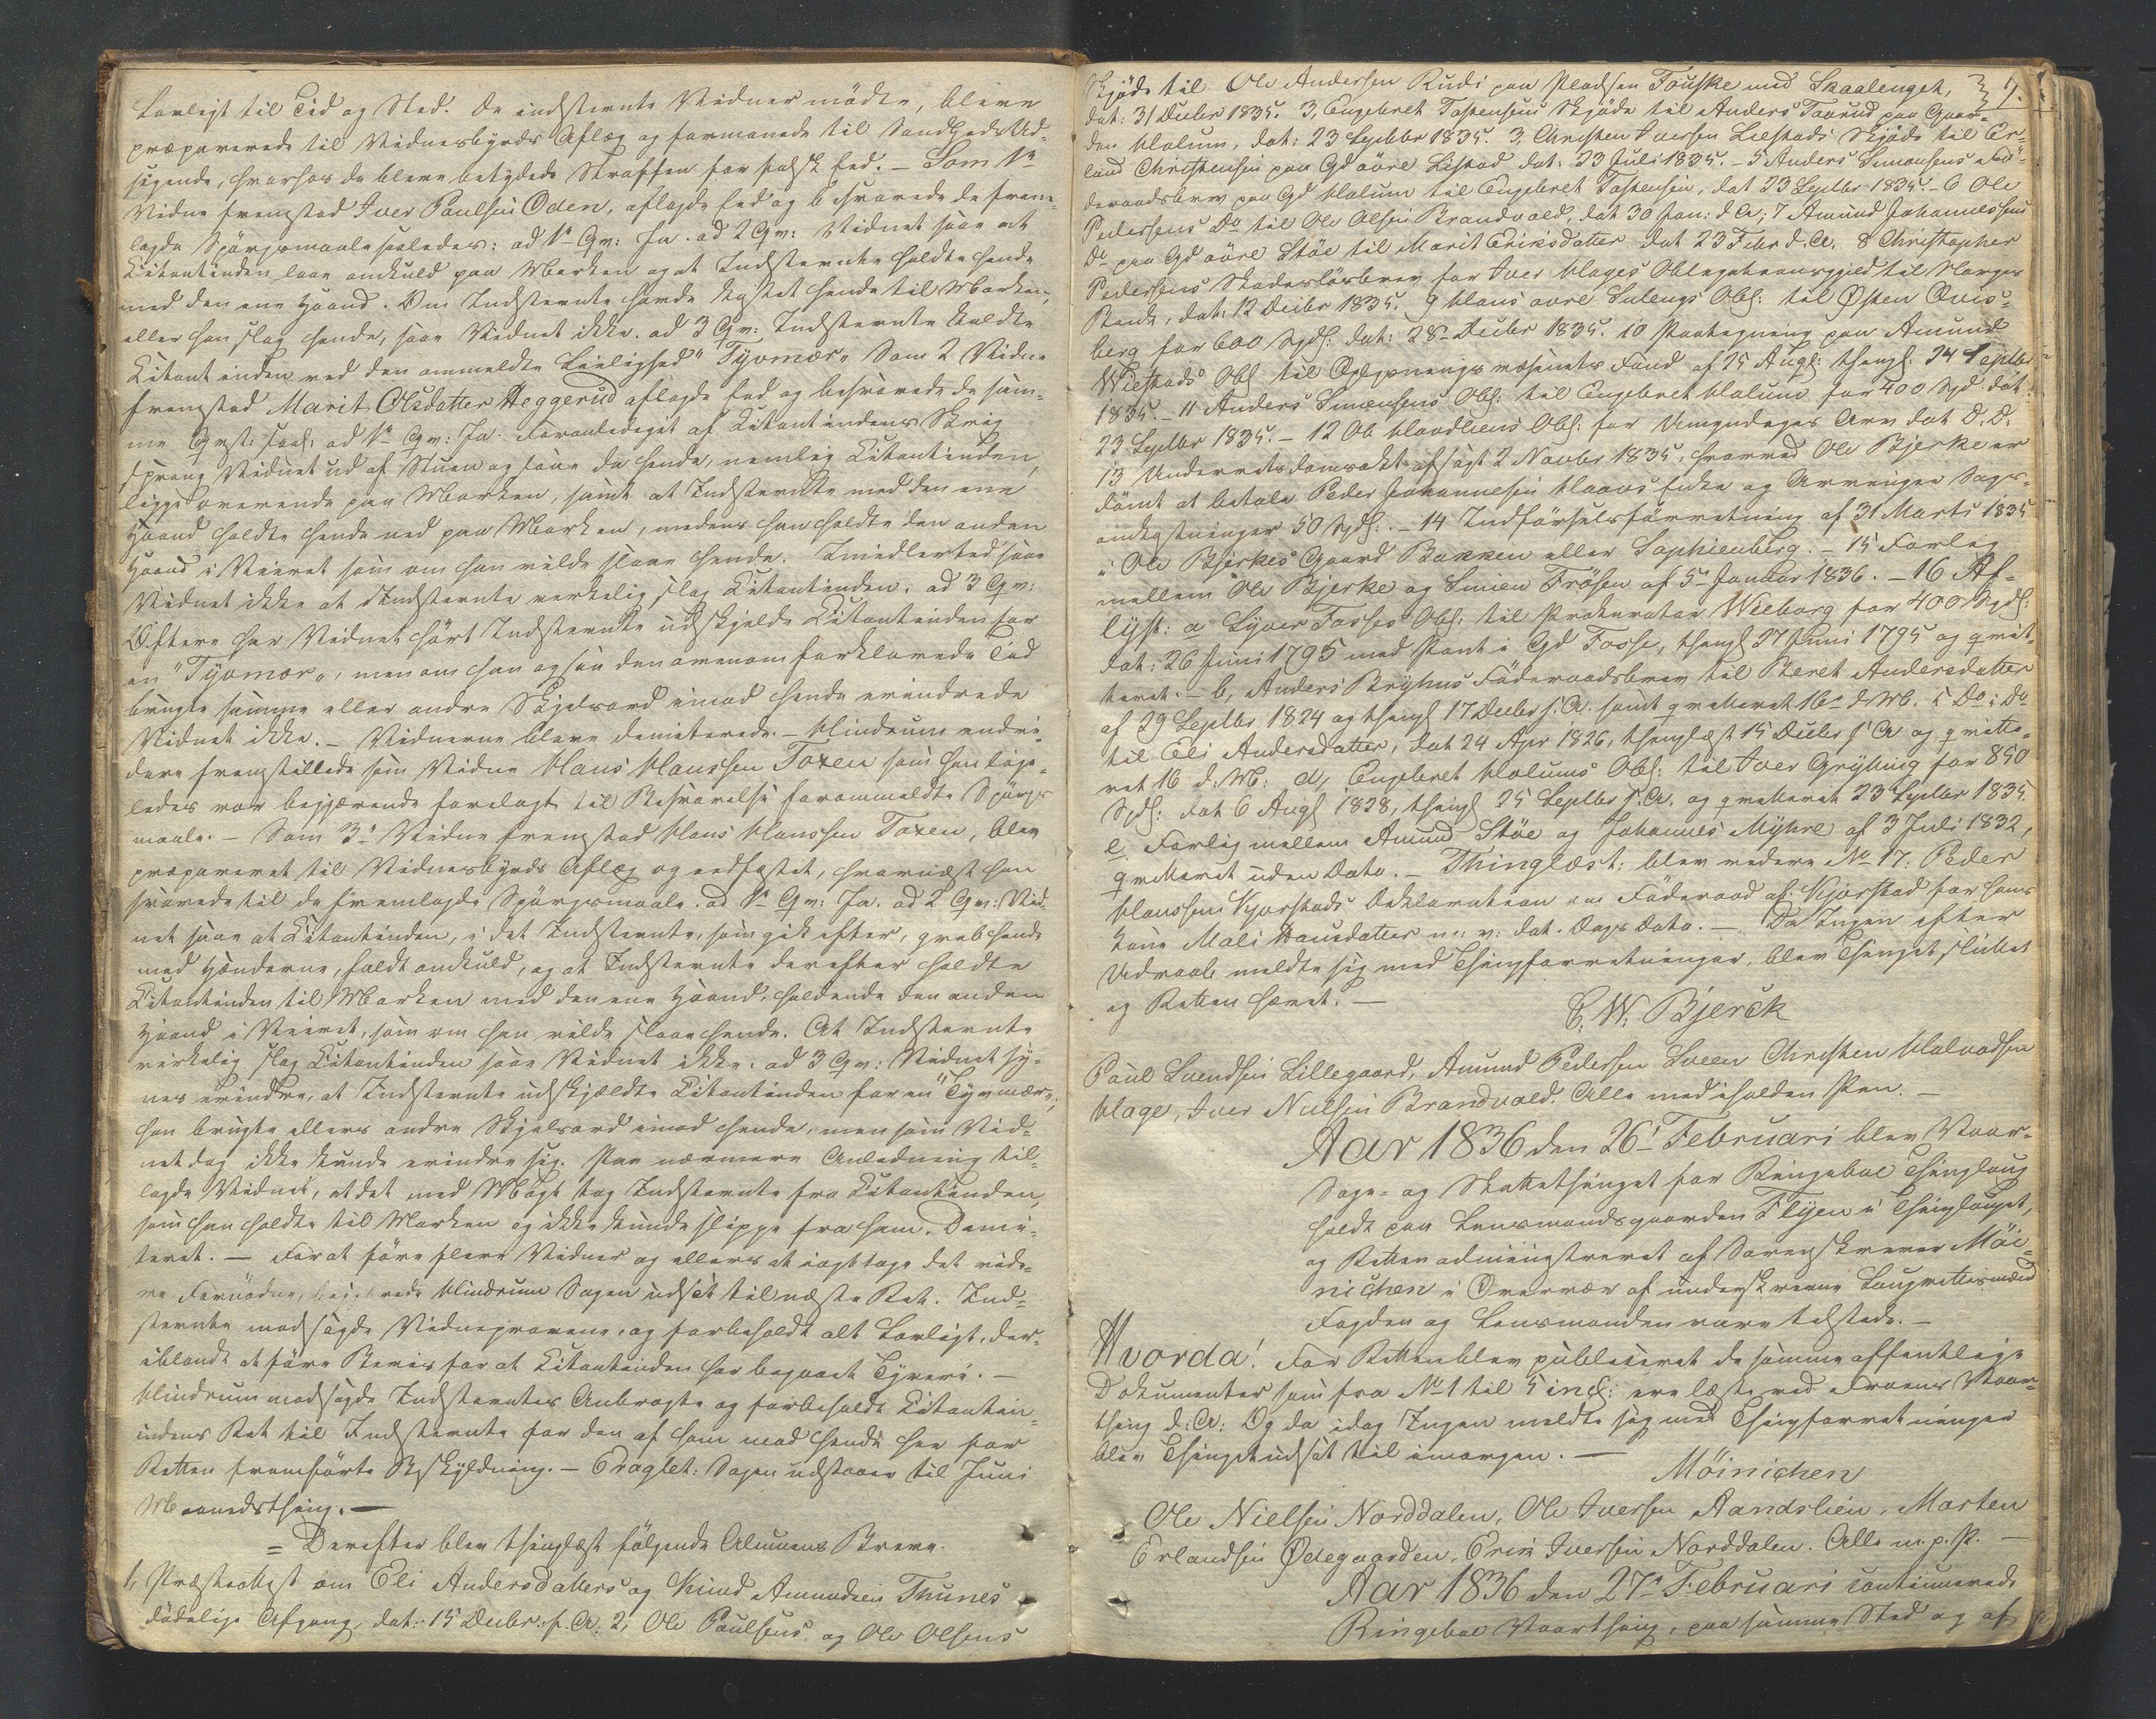 lovligt til Tid og Sted. De indstevnte Vidner mødte, bleve
præparerede til Vidnesbyrds Aflæg og formanede til Sandheds Ud-
sigende, hvorhos de bleve betydede Straffen for falsk Eed. – Som 1te
Vidne fremstod Iver Paulsen Oden, aflagde Eed og besvarede de frem-
lagde Spørgsmaale saaledes: ad 1te Qv: Ja. ad 2 Qv: Vidnet saae at
Citantinden laae omkuld paa Marken og at Indstevnte holdte hende
med den ene Haand. Om Indstevnte havde kystet hende til Marken,
eller han slog hende, saae Vidnet ikke. ad 3 Qv: Indstevnte kaldte
Citantinden ved den ommeldte Leilighed "Tyvmær" Som 2 Vidne
fremstod Marit Olsdatter Heggerud aflagde Eed og besvarede de sam-
me Qvst: saal: ad 1te Qv: Ja. Foranlediget af Citantindens Skrig
sprang Vidnet ud af Stuen og saae da hende, nemlig Citantinden,
ligge overende paa Marken, samt at Indstevnte med den ene
Haand holdte hende ned paa Marken, medens han holdte den anden
Haand i Veiret som om han vilde slaae hende. Imidlertid saae
Vidnet ikke at Indstevnte virkelig slog Citantinden. ad 3 Qv:
Oftere har Vidnet hørt Indstevnte udskjelde Citantinden for
en "Tyvmær", men om han ogsaa den ovenom forklarede Tid
brugte samme eller andre Skjelsord imod hende erindrede
Vidnet ikke. – Vidnerne bleve demitterede. – Hindrum endvi-
dere fremstillede som Vidne Hans Hanssen Toxen som han lige-
ledes var begjærende forelagt til Besvarelse forommeldte Spørgs
maale. – Som 3de Vidne fremstod Hans Hanssen Toxen, blev
præpareret til Vidnesbyrds Aflæg og eedfæstet, hvornæst han
svarede til de fremlagde Spørgsmaale. ad 1te Qv: Ja. ad 2 Qv: Vid-
net saae at Citantinden, i det Indstevnte, som gik efter, greb hende
med Hænderne, faldt omkuld, og at Indstevnte derefter holdte
Citantinden til Marken med den ene Haand, holdende den anden
Haand i Veiret, som om han vilde slaae hende. At Indstevnte
virkelig slog Citantinden saae Vidnet ikke. ad 3 Qv: Vidnet sy-
nes erindre, at Indstevnte udskjældte Citantinden for en "Tyvmær",
han brugte ellers andre Skjelsord imod hende, men som Vid-
net dog ikke kunde erindre sig. Paa nærmere Anledning til-
lagde Vidnet, at det med Magt tog Indstevnte fra Citantinden,
som han holdte til Marken og ikke kunde slippe fra ham. Demi-
teret. – For at føre flere Vidner og ellers at iagttage det vide-
re Fornødne, begjærede Hindrum Sagen udsat til næste Ret. Ind-
stevnte modsagde Vidneprovene, og forbeholdt alt Lovligt, der-
iblandt at føre Beviis for at Citantinden har begaaet Tyveri. –
Hindrum modsagde Indstevntes Anbragte og forbeholdt Citantin-
indens Ret til Indstevnte for den af ham mod hende her for
Retten fremførte Beskyldning. – Eragtet: Sagen udstaaer til Juni
Maanedsthing. –
= Derefter blev thinglæst følgende Almuens Breve.
1, Præsteattest om Eli Andersdatters og Knud Amundsen Thunes
dødelige Afgang, dat: 15 Decbr: f. A: 2, Ole Paulsens og Ole Olsens
7.
Skjøde til Ole Andersen Rudi paa Pladsen Fouske med Skaalenget,
dat: 31 Decbr 1835. 3, Engebret Tostensens Skjøde til Anders Taarud paa Gaar-
den Holum, dat: 23 Septbr 1835. 3, Christen Iversen Listads Skjøde til Er-
land Christensen paa Gd øvre Listad dat: 23 Juli 1835. – 5 Anders Simensens Fø-
deraadsbrev paa Gd Holum til Engebret Tostensen, dat 23 Septbr 1835. – 6 Ole
Pedersens Do til Ole Olsen Brandvold, dat 30 Jan: d. A; 7 Amund Johannessens
Do paa Gd øvre Støe til Marit Eriksdatter dat 23 Febr d. A. 8 Christopher
Pedersens Skadesløsbrev for Iver Hages Obligationsgjeld til Norges
Bank, dat: 12 Decbr 1835. 9 Hans øvre Sulengs Obl: til Østen Qvis-
berg for 600 Spd: dat: 28 Decbr 1835. 10 Paategning paa Amund
Wiestads Obl til Oplysningsvæsenets Fond af 25 Augl: thingl: 24 Septbr
1835. – 11 Anders Simensens Obl: til Engebret Holum for 400 Spd dat:
23 Septbr 1835. – 12 Ob Haadliens Obl: for Umyndiges Arv dat D. D.
13 Underretsdomsakt afsagt 2 Novbr 1835, hvorved Ole Bjerke er
dømt at betale Peder Johannesen Haaves Enke og Arvinger Sags-
omkostninger 50 Spd: – 14 Indførselsforretning af 31 Marts 1835
i Ole Bjerkes Gaard Bakken eller Sophienberg. – 15 Forlig
mellem Ole Bjerke og Simen Frøsen af 5te Januar 1836. – 16 Af-
lyst: a Syver Fosses Obl: til Prokurator Wieborg for 400 Spd:
dat: 26 Juni 1795 med Pant i Gd Fosse, thingl 27 Juni 1795 og qvit-
teret. – b, Anders Bryhns Føderaadsbrev til Beret Andersdatter
af 29 Septbr 1824 og thingl 17 Decbr s. A. samt qvitteret 16de d. M. c Do: Do
til Eli Andersdatter, dat 24 Apr 1826, thinglæst 15 Decbr s. A og qvitte-
ret 16 d. M: d, Engebret Holums Obl: til Iver Gryhing for 850
Spd: dat 6 Augl 1828, thingl 25 Septbr s. A. og qvitteret 23 Septbr 1835.
e Forlig mellem Amund Støe og Johannes Myhre af 3 Juli 1832,
qvitteret uden Dato. – Thinglæst: blev videre No 17. Peder
Hanssen Kjorstads Deklaration om Føderaad af Kjorstad for hans
Kone Mali Hansdatter m: v: dat. Dags Dato. – Da Ingen efter
Udraab meldte sig med Thingforretninger, blev Thinget sluttet
og Retten hævet. –
C. W. Bjerck
Paul Svendsen Lillegaard, Amund Pedersen Sveen Christen Halvadsen
Hage, Iver Nielsen Brandvold. Alle med iholden Pen. –
Aar 1836 den 26' Februari blev Vaar-
Sage- og Skattethinget for Ringeboe Thinglaug
holdt paa Lensmandsgaarden Flyen i Thinglauget,
og Retten administreret af Sorenskriver Møi-
nichen i Overvær af underskrevne Laugrettesmænd
Fogden og Lensmanden vare tilstede. –
Hvorda! For Retten blev publiceret de samme offentlige
Dokumenter som fra No 1 til 5 incl: ere læste ved Froens Vaar-
thing d: A: Og da idag Ingen meldte sig med Thingforretninger
blev Thinget udsat til imorgen. –
Møinichen
Ole Nielsen Norddalen, Ole Iversen Aandslien, Morten
Erlandsen Ødegaarden, Erik Iversen Norddalen. Alle m. p. P. –
Aar 1836 den 27' Februari continuerede
Ringeboe Vaarthing, paa samme Sted og af